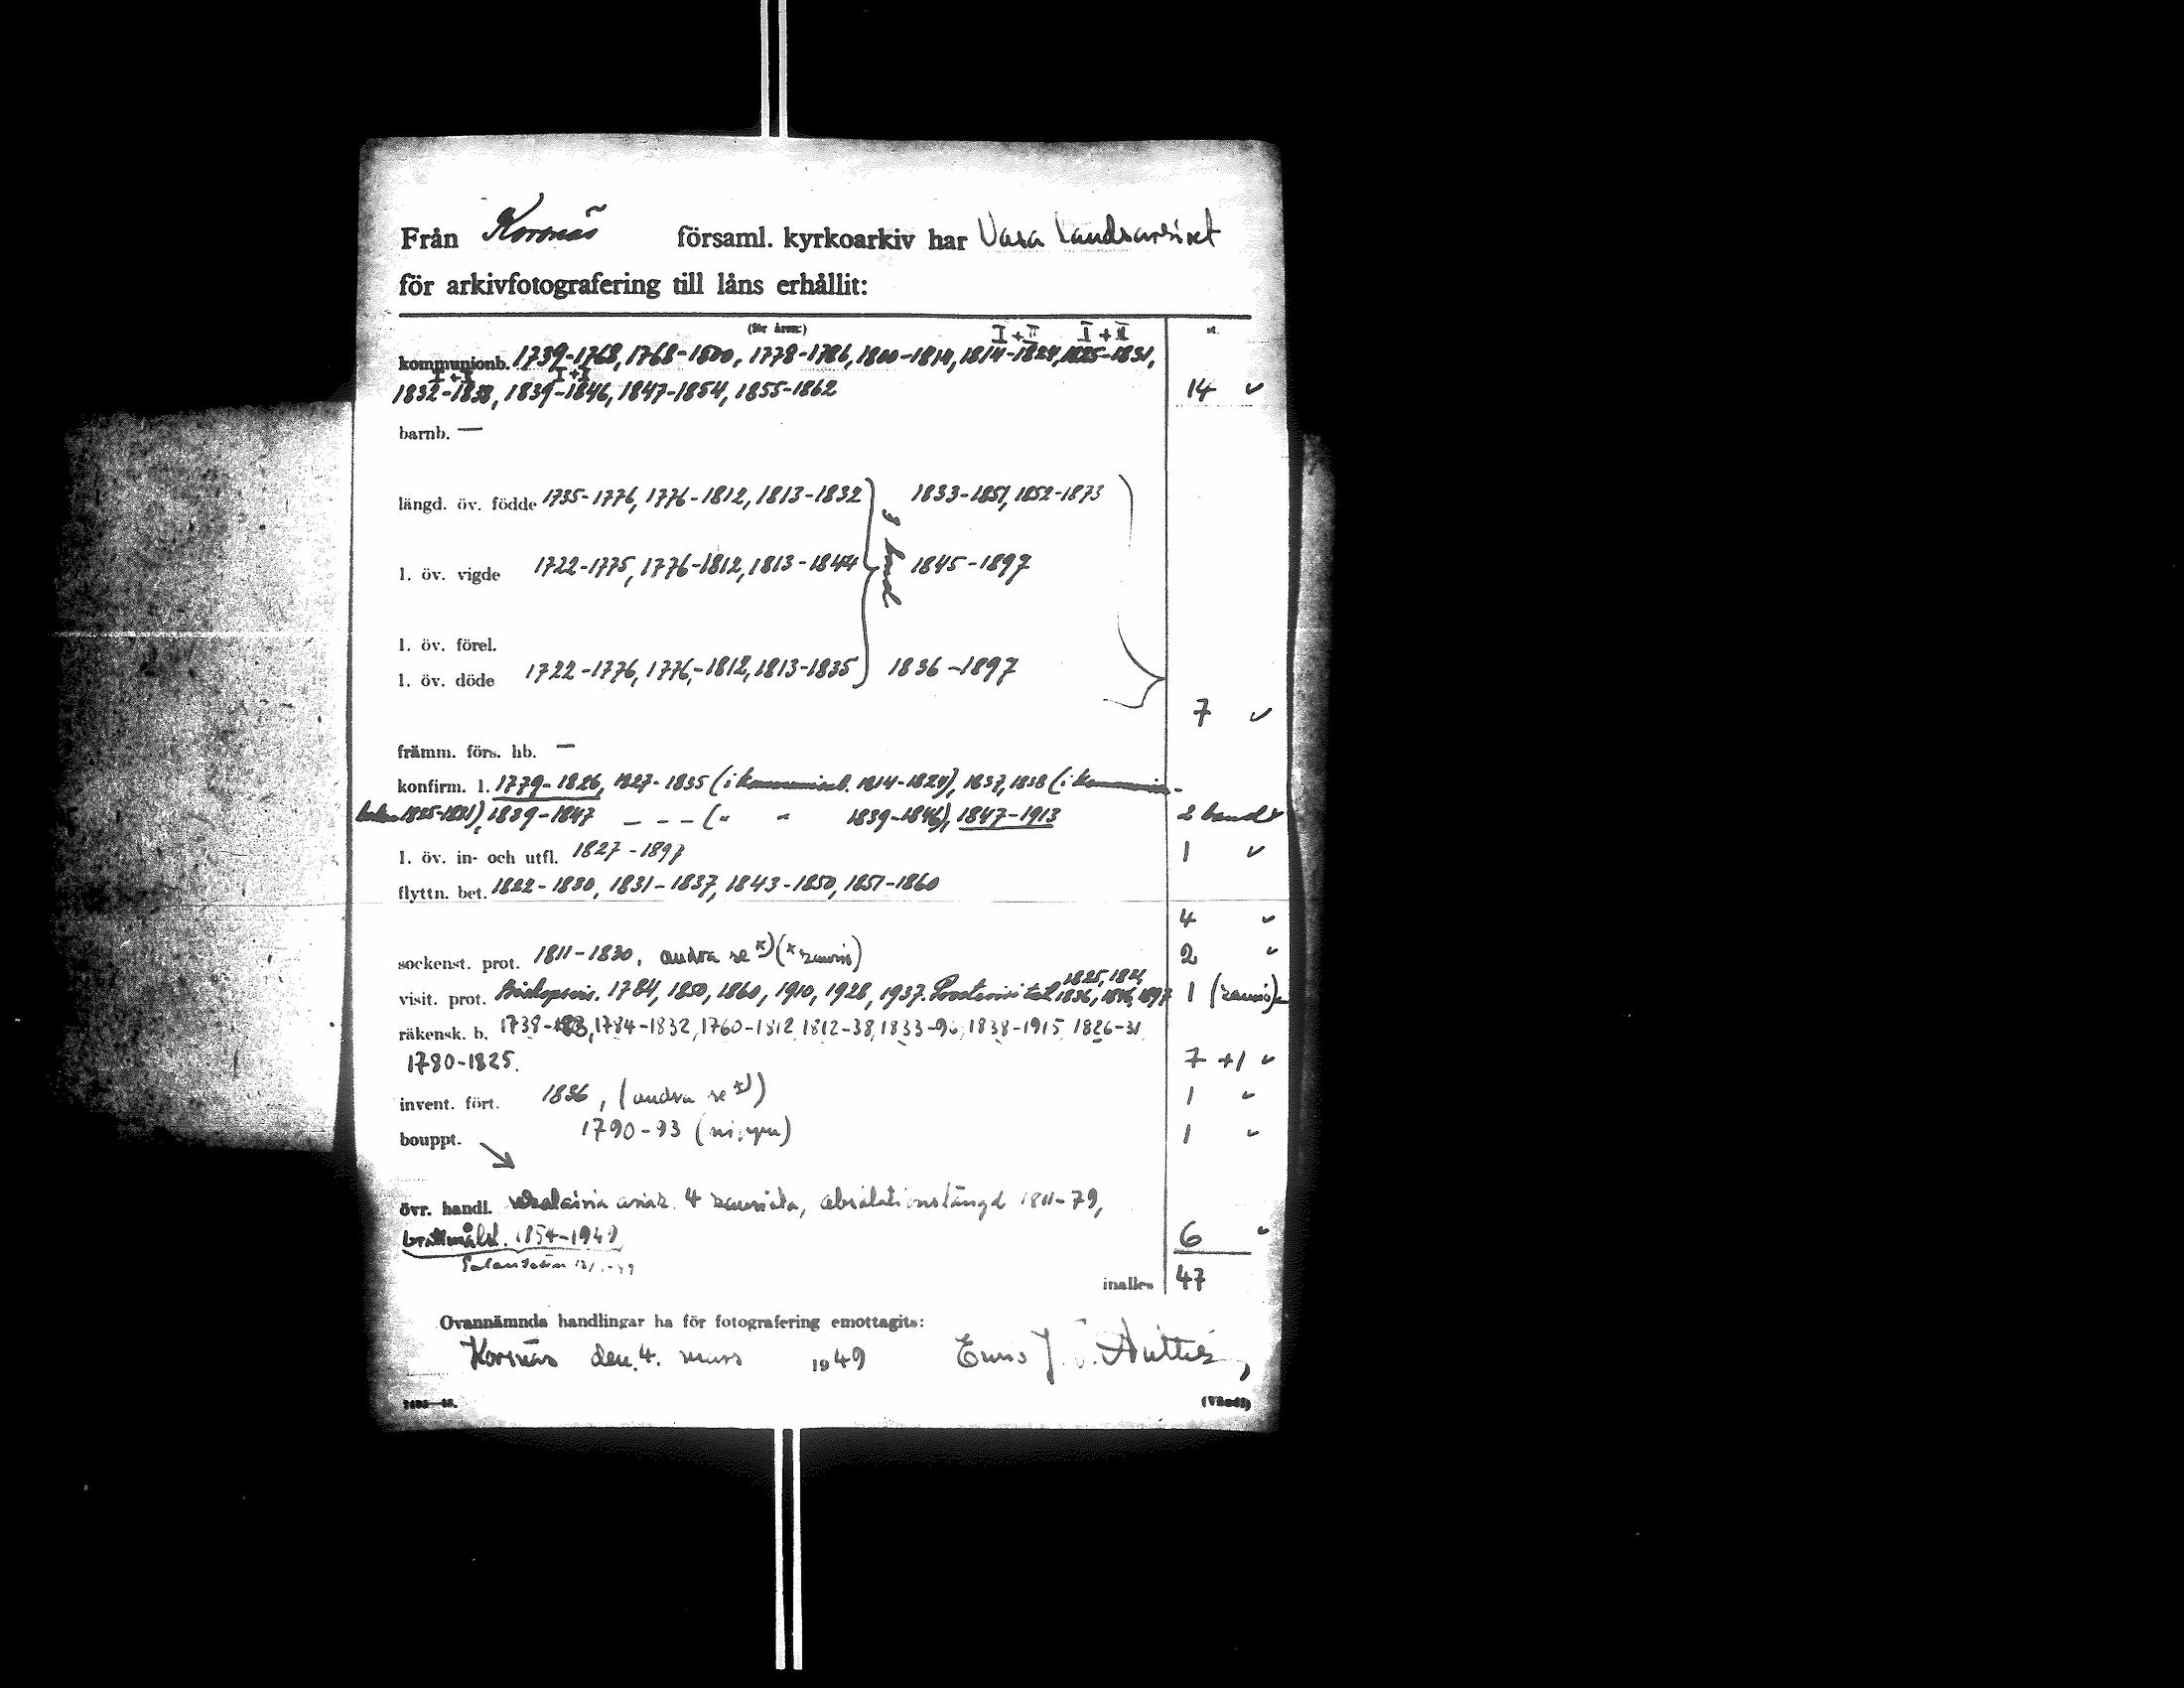 Från Korsnäs församl. kyrkoarkiv har Vasa Landsarkivet
för arkivfotografering till låns erhållit:
(för åren:) I + II I + II st.
kommunionb. 1739-1768, 1768-1800, 1778-1786, 1800-1814, 1814-1824, 1825-1831,
I + II I + II
1832-1838, 1839-1846, 1847-1854, 1855-1862 14 ✓
barnb. —
längd. öv. födde 1735-1776, 1776-1812, 1813-1832 1833-1851, 1852-1873
3 band
l. öv. vigde 1722-1775, 1776-1812, 1813-1844 1845-1897
l. öv. förel.
l. öv. döde 1722-1776, 1776-1812, 1813-1835 1836-1897
7 ✓
främm. förs. hb. —
konfirm. l. 1779-1826, 1827-1835 (i kommunionb. 1814-1824), 1837, 1838 (i kommunion-
boken 1825-1831), 1839-1847 - - - (" " 1839-1846), 1847-1913 2 band ✓
l. öv. in- och utfl. 1827-1897 1 ✓
flyttn. bet. 1822-1830, 1831-1837, 1843-1850, 1851-1860
4 ✓
sockenst. prot. 1811-1830, andra se x) (x 2 ✓
1825, 1841,
visit. prot. Biskopsvis. 1784, 1850, 1860, 1910, 1928, 1937. 1836, 1846, 1897 1
räkensk. b. 1784-1832, 1760-1812, 1812-38, 1833-96, 1838-1915, 1826-31,
1780-1825. 7 +1 ✓
invent. fört. 1836, (andra se x)) 1 ✓
bouppt. 1790-93 1 ✓
övr. handl. 4 1811-79,
1854-1949 6 ✓
inalles 47
Ovannämnda handlingar ha för fotografering emottagits:
Korsnäs den 4. mars 1949
(Vänd!)